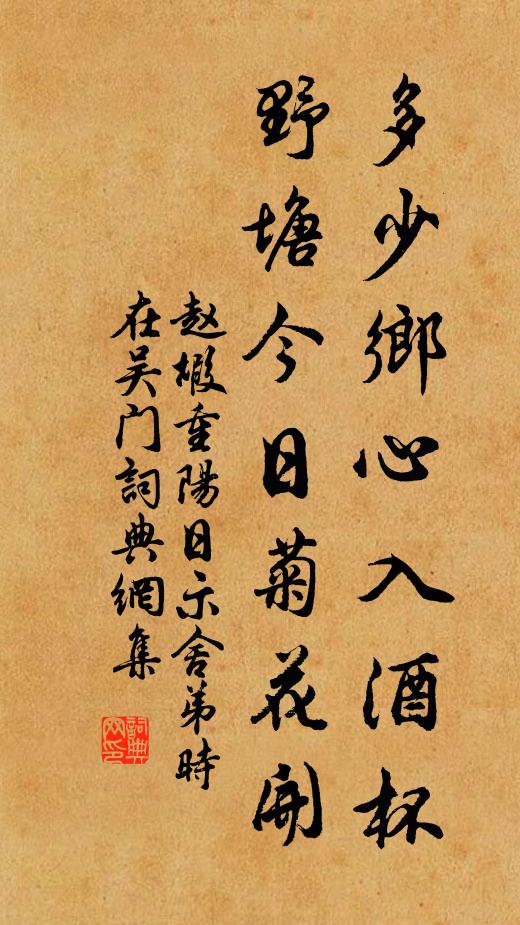 多少鄉心入酒杯
野塘今日菊花開
赵嘏重陽日示舍弟時
在吴门詞典網集
詞典
网印